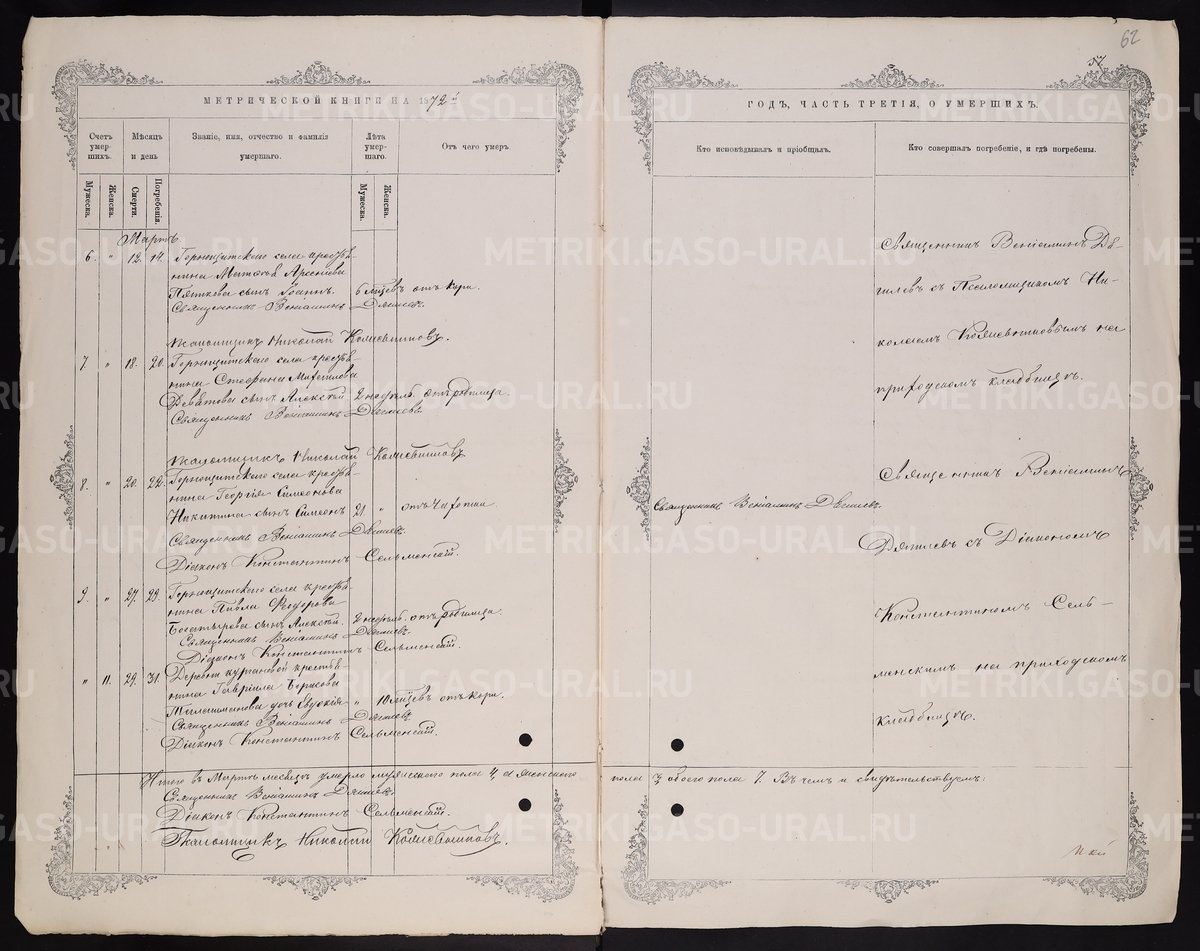 62
57
МЕТРИЧЕСКОЙ КНИГИ НА 1872й
Счетъ умер-шихъ.
Мѣсяцъ и день
Званіе, имя, отчество и фамилія умершаго.
Лѣта умер-шаго.
Отъ чего умеръ.
Мужеска.
Женска.
Смерти.
Погребенія.
Мужеска.
Женска.
Мартъ.
6. " 12. 14. Горнощитскаго села крестья-
нина Матѳѣя Арсеніева
Пяткова сынъ Іоаннъ. 6 мѣсяц. отъ кори.
Священникъ Веніаминъ Дягилевъ.
Псаломщикъ Николай
7. " 18. 20. Горнощитскаго села крестья-
нина Стефана Михаилова
сынъ Алексѣй. 2 недѣль. отъ родимца.
Священникъ Веніаминъ Дягилевъ.
Псаломщикъ Николай
8. " 20. 22. Горнощитскаго села крестья-
нина Георгія Симеонова
Никитина сынъ Симеонъ 21 " отъ чахотки
Священникъ Веніаминъ Дягилевъ.
Діаконъ Константинъ Сельменскій.
9. " 27. 29. Горнощитскаго села крестья-
нина Павла Ѳеодорова
Богатырева сынъ Алексѣй. 2 недѣль. отъ родимца.
Священникъ Веніаминъ Дягилевъ.
Діаконъ Константинъ Сельменскій.
" 11. 29. 31. Деревни Кургановой крестья-
нина Гавріила Борисова
дочь Евдокія " 10 мѣсяцевъ отъ кори.
Священникъ Веніаминъ Дягилевъ
Діаконъ Константинъ Сельменскій.
Итого въ Мартѣ мѣсяцѣ умерло мужескаго пола 4, а женскаго
Священникъ Веніаминъ Дягилевъ.
Діаконъ Константинъ Сельменскій.
Псаломщикъ Николай
ГОДЪ, ЧАСТЬ ТРЕТІЯ, О УМЕРШИХЪ.
Кто исповѣдывалъ и пріобщалъ.
Кто совершалъ погребеніе, и гдѣ погребены.
Священникъ Веніаминъ Дя-
гилевъ съ Псаломщикомъ Ни-
колаемъ на
приходскомъ кладбищѣ.
Священникъ Веніаминъ
Священникъ Веніаминъ Дягилевъ.
Дягилевъ съ Діакономъ
Константиномъ Сель-
менскимъ на приходскомъ
кладбищѣ.
пола 3, обоего пола 7. Въ чемъ и свидѣтельствуемъ:
METRIKI.GASO-URAL.RU